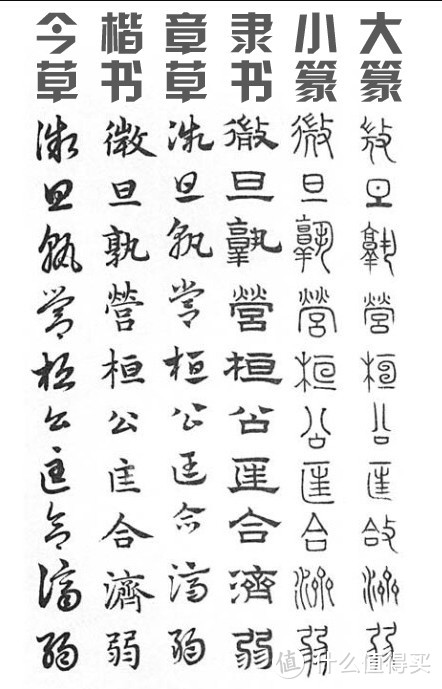 大篆
微旦孰營桓公匡合濟弱
小篆
微旦孰營桓公匡合濟弱
隶书
微旦孰營桓公匡合濟弱
章草
微旦孰營桓公匡合濟弱
楷书
微旦孰營桓公匡合濟弱
今草
微旦孰營桓公匡合濟弱
值 什么值得买